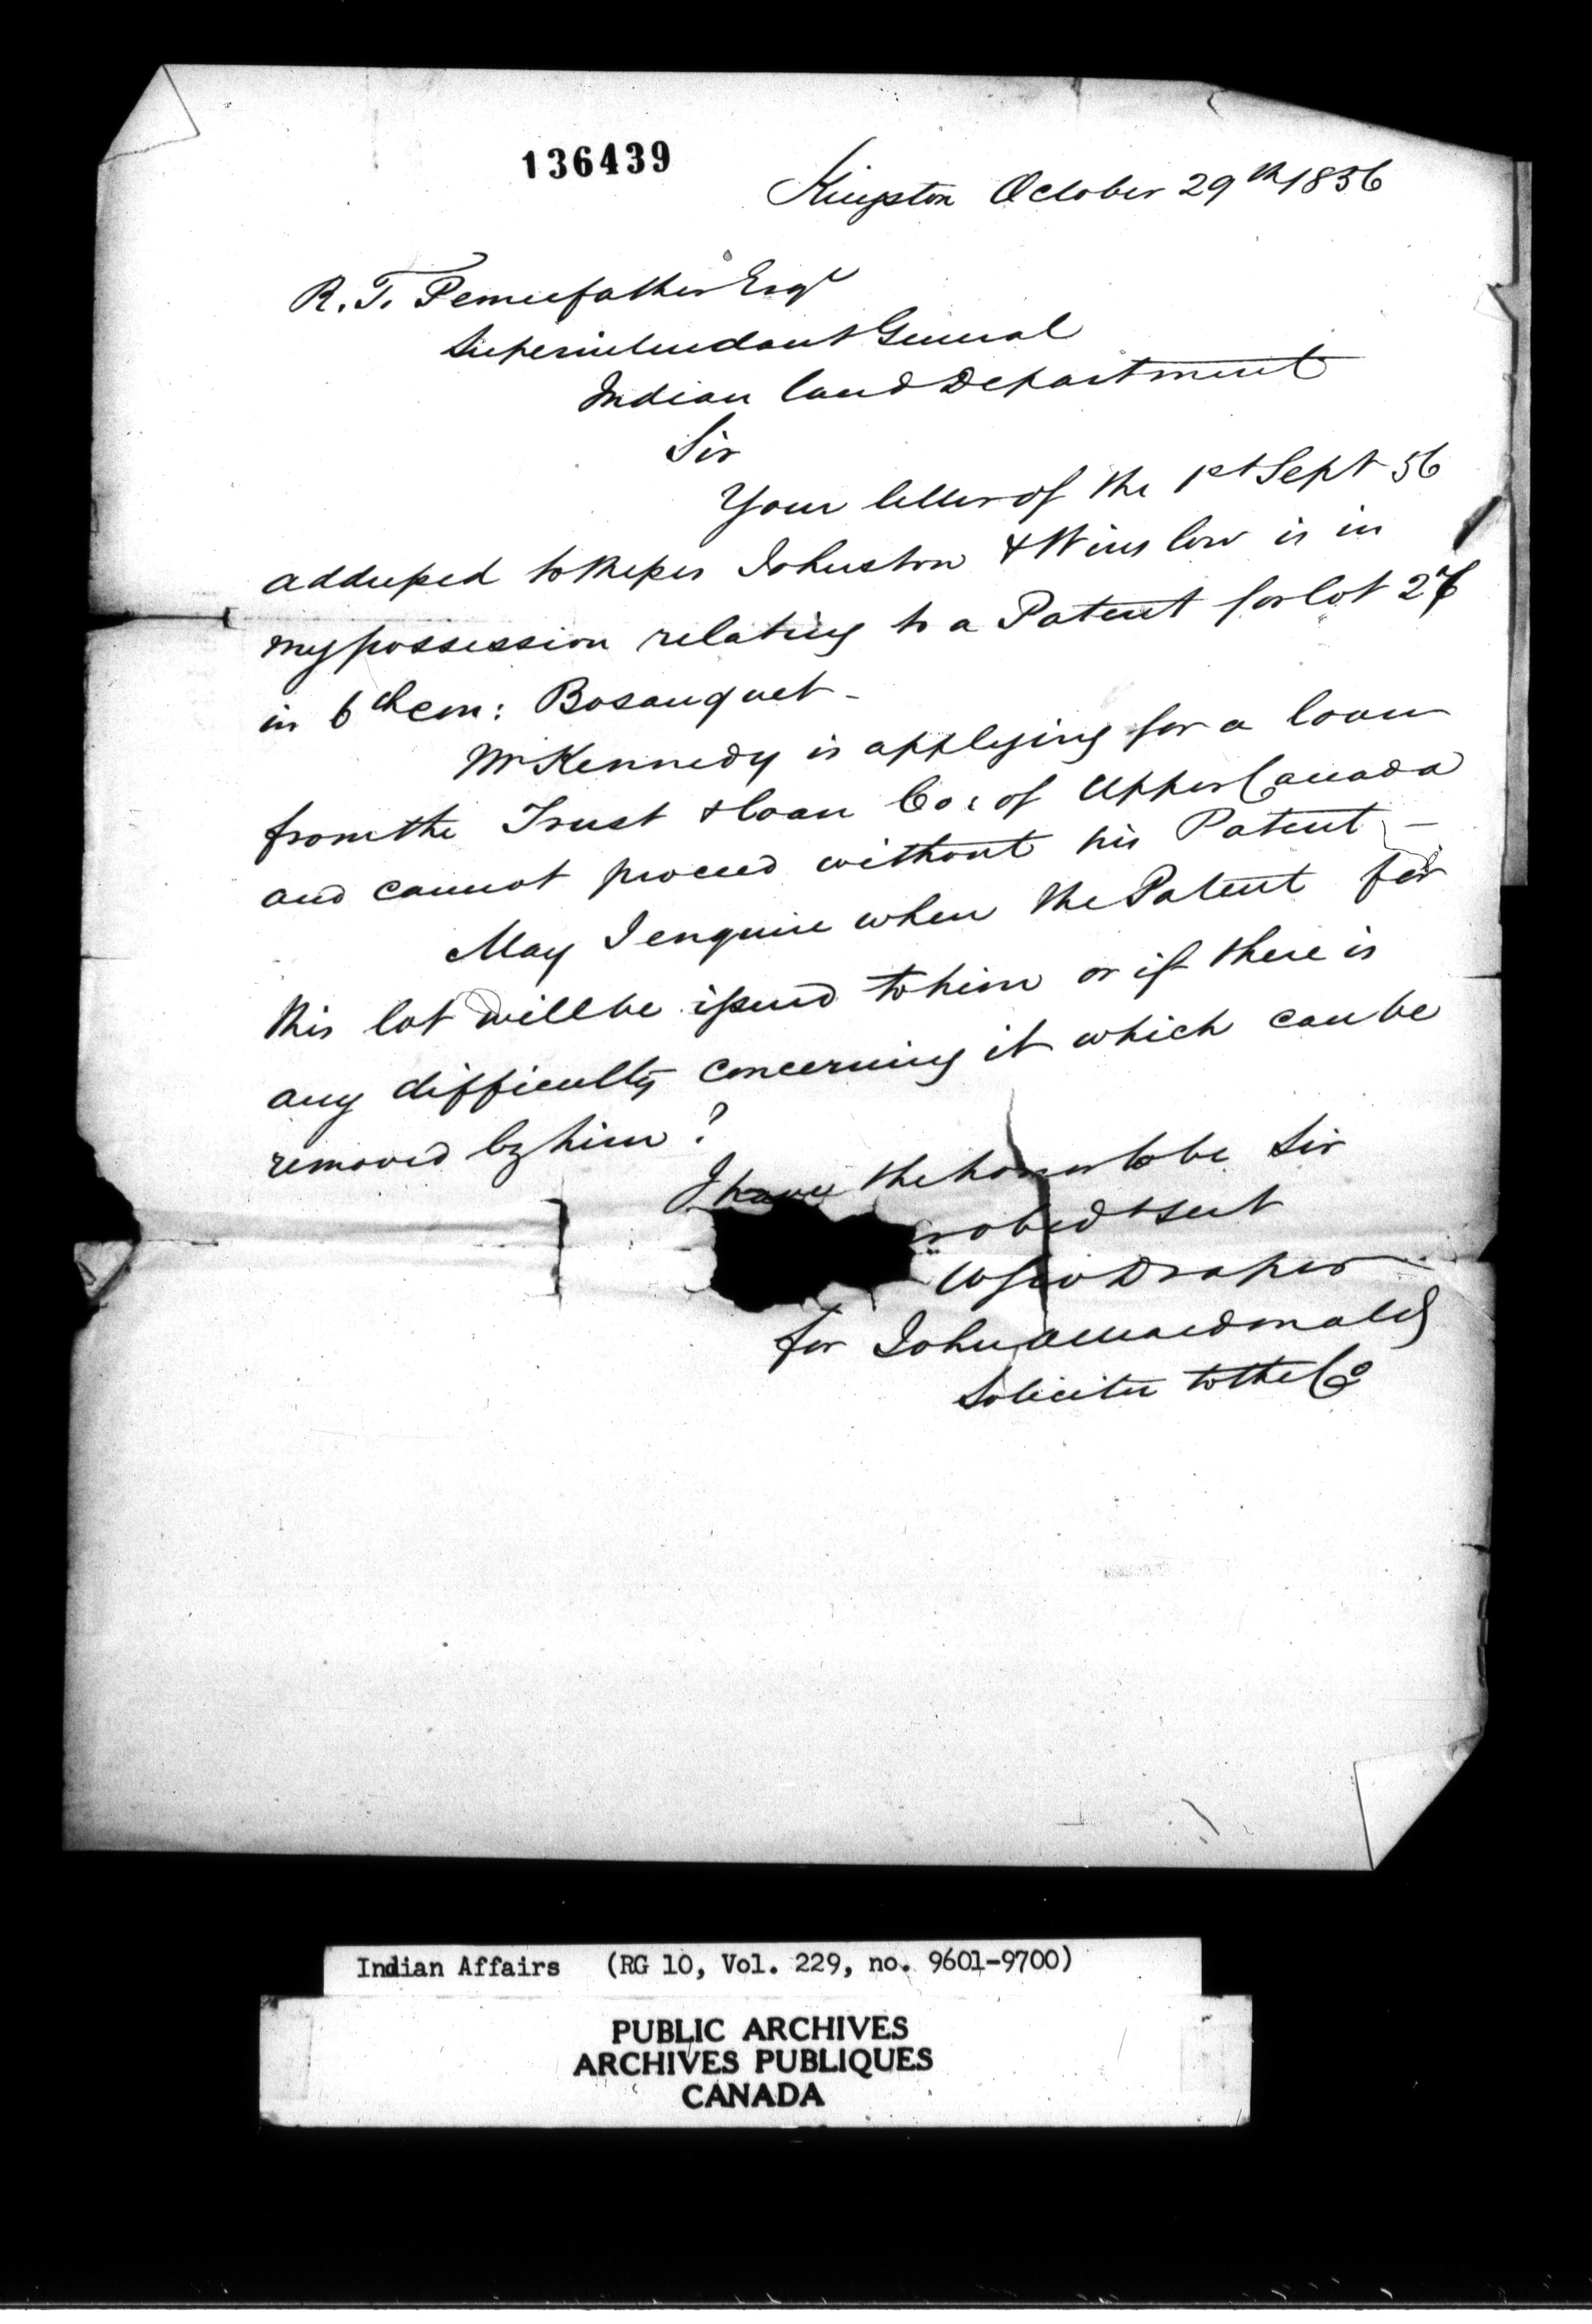 136439
Kingston October 29th 1856
R. T. Pennefather Esqr
Superintendant General
Indian land Department
Sir
Your letter of the 1st Sept 56
addressed to Messrs Johnston & Winslow is in
my possession relating to a Patent for lot
in 6th con: Bosanquet -
Mr Kennedy is applying for a loan
from the Trust & loan Co: of Upper Canada
and cannot proceed without his Patent -
May I enquire when the Patent for
this lot will be issued to him or if there is
any difficulty concerning it which can be
removed by him ?
I have the honor to be Sir
obedt sert
Draper
for John A Macdonald
Solicitor to the Co
Indian Affairs (RG 10, Vol. 229, no. 9601-9700)
PUBLIC ARCHIVES
ARCHIVES PUBLIQUES
CANADA